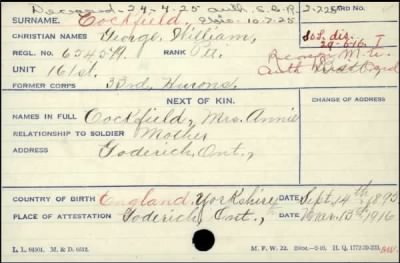 Deceased - 24-4-25 auth. S.C.R. 2-7-25
SURNAME. Cockfield, 10-7-25
CHRISTIAN NAMES George William, S.O.S. dis.
REGL. NO. 654519 RANK Pte. 29-6-16
UNIT 161st. Auth
FORMER CORPS 33rd Hurons.
NEXT OF KIN. CHANGE OF ADDRESS
NAMES IN FULL Cockfield, Mrs. Annie
RELATIONSHIP TO SOLDIER Mother
ADDRESS Goderich, Ont.,
COUNTRY OF BIRTH England, Yorkshire DATE Sept. 14th 1893
PLACE OF ATTESTATION Goderich, Ont., DATE Mar. 13th 1916
L. L. 94501. M. & D. 6512. M. F. W. 22. H. Q. 1772-39-223